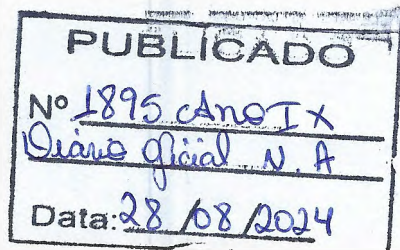 PUBLICADO
Nº 1895 Ano IX
Diário Oficial N. A
Data: 28 /08 /2024